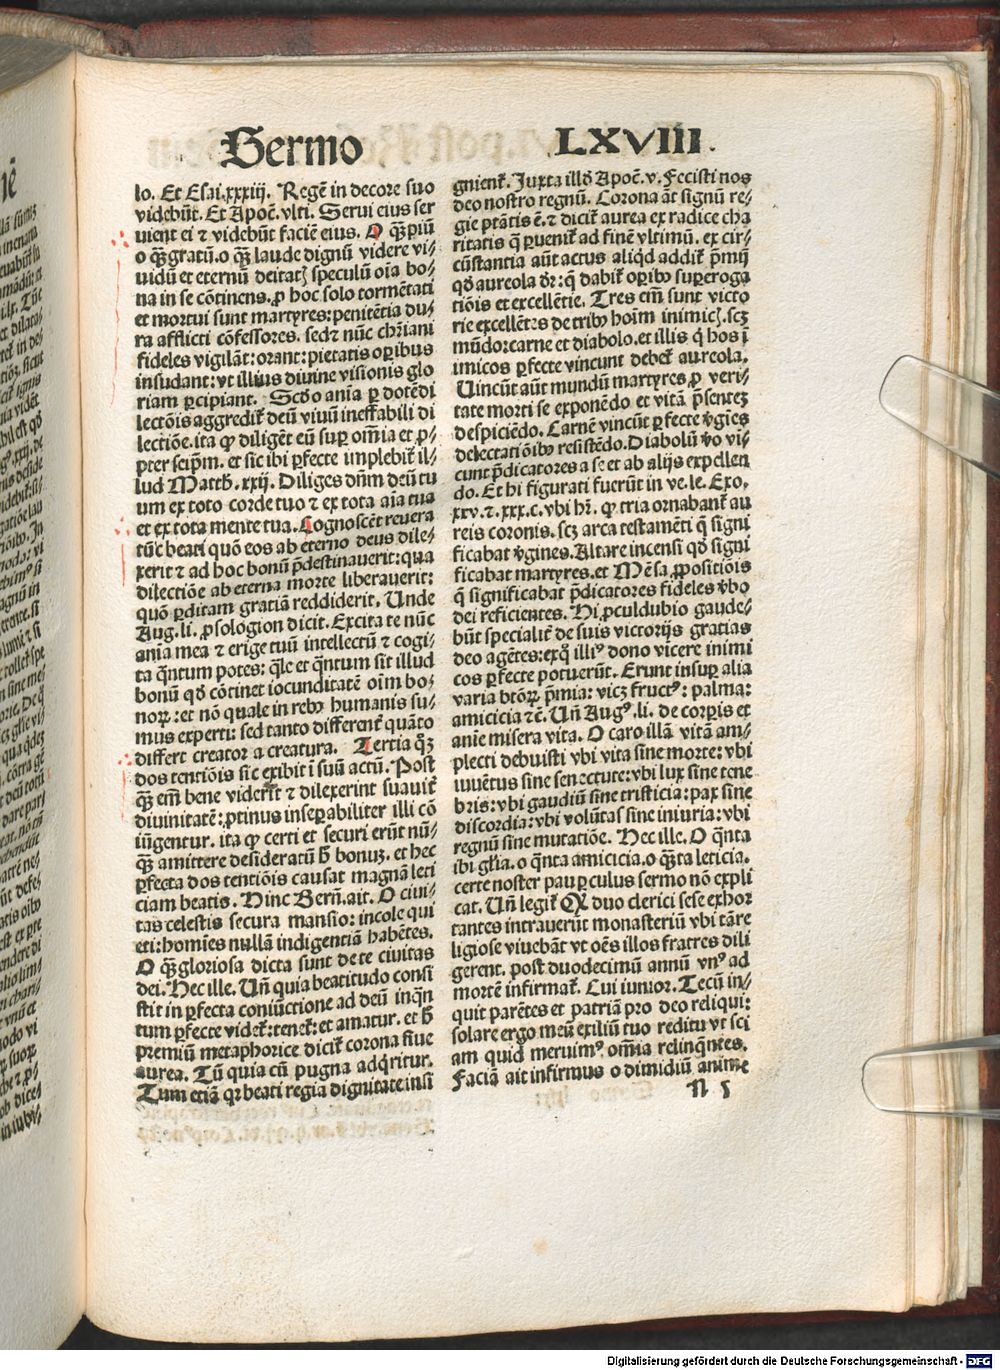 Sermo LXVIII.
lo. Et Esai.xxxiij. Regē in decore suo
videbūt. Et Apoc̄. vlti. Serui eius ser
uient ei ⁊ videbūt faciē eius. O qȝ̄ piū
o qȝ̄ gratū.o qȝ̄ laude dignū videre vi⸗
uidū et eternū deitatꝭ speculū oīa bo⸗
na in se cōtinens.ꝓ hoc solo tormētati
et mortui sunt martyres:penitētia du⸗
ra afflicti cōfessores. sedꝫ nūc chr̄iani
fideles vigilāt:orant:pietatis oꝑibus
insudant:vt illius diuine visionis glo
riam ꝑcipiant. Scd̄o aīa ꝑ dotē di
lectōis aggredit᷑ deū viuū ineffabili di
lectiōe.ita ꝙ diligēt eū suꝑ om̄ia et ꝓ⸗
pter seip̄m. et sic ibi ꝑfecte implebit᷑ il⸗
lud Matth. xxij. Diliges dn̄m deū tu
um ex toto corde tuo ⁊ ex tota aīa tua
et ex tota mente tua. Cognoscēt reuera
tūc beati quō eos ab eterno deus dile⸗
xerit ⁊ ad hoc bonū p̄destinauerit:qua
dilectiōe ab eterna morte liberauerit:
quō ꝑditam gratiā reddiderit. Unde
Aug. li. ꝓsologion dicit. Excita te nūc
aīa mea ⁊ erige tuū intellectū ⁊ cogi⸗
ta qn̄tum potes: qλe et qn̄tum sit illud
bonū qd̄ cōtinet iocunditatē oīm bo⸗
noꝝ:et nō quale in rebꝰ humanis su⸗
mus experti: sed tanto different᷑ quāto
differt creator a creatura. Tertia qͦȝ
dos tentiōis sic exibit ī suū actū. Post
qȝ̄ em̄ bene viderīt ⁊ dilexerint suauit᷑
diuinitatē:ꝓtinus inseꝑabiliter illi cō
iūgentur. ita ꝙ certi et securi erūt nū⸗
qȝ̄ amittere desideratū h̄ bonuȝ. et hec
ꝑfecta dos tentiōis causat magnā leti
ciam beatis. Hinc Bern̄.ait. O ciui⸗
tas celestis secura mansio: incole qui
eti:homīes nullā indigentiā habētes.
O qȝ̄ gloriosa dicta sunt de te ciuitas
dei. Hec ille. Un̄ quia beatitudo consi
stit in ꝑfecta coniūctione ad deū inqn̄
tum ꝑfecte videt᷑:tenet᷑:et amatur. et h̄
premiū metaphorice dicit᷑ corona siue
aurea. Tū quia cū pugna adqͥritur.
Tum etiā qꝛ beati regia dignitate insi
gnient᷑. Juxta illd̄ Apoc̄. v. Fecisti nos
deo nostro regnū. Corona āt signū re⸗
gie ptātis ē. ⁊ dicit᷑ aurea ex radice cha
ritatis q̄ ꝑuenit᷑ ad finē vltimū. ex cir⸗
cūstantia aūt actus aliqͥd addit᷑ p̄mij
qd̄ aureola dr̄: q̄ dabit᷑ oꝑibꝰ suꝑeroga
tiōis et excellētie. Tres em̄ sunt victo
rie excellētes de tribꝰ hoīm inimicꝭ.scȝ
mūdo:carne et diabolo.et illis q̄ hos ī
imicos ꝑfecte vincunt debet᷑ aureola.
Uincūt aūt mundū martyres.ꝓ veri⸗
tate morti se exponēdo et vitā p̄sentez
despiciēdo. Carnē vincūt ꝑfecte v̄gīes
delectatiōibꝰ resistēdo.Diabolū v̄o vi⸗
cunt p̄dicatores a se et ab alijs expellen
do. Et hi figurati fuerūt in ve.le. Exo.
xxv.⁊.xxx.c.vbi hr̄. ꝙ tria ornabant᷑ au
reis coronis. scȝ arca testamēti q̄ signi
ficabat v̄gines.Altare incensi qd̄ signi
ficabat martyres.et Mēsa ꝓpositiōis
q̄ significabat p̄dicatores fideles v̄bo
dei reficientes. Hi ꝓculdubio gaude⸗
būt specialit᷑ de suis victorijs gratias
deo agētes:ex qͦ illiꝰ dono vicere inimi
cos ꝑfecte potuerūt. Erunt insuꝑ alia
varia btōꝝ p̄mia: vicȝ fructꝰ: palma:
amicicia ⁊c̄. Un̄ Augꝰ.li. de corꝑis et
anīe misera vita. O caro illā vitā am⸗
plecti debuisti vbi vita sine morte:vbi
iuuētus sine senectute:vbi lux sine tene
bris:vbi gaudiū sine tristicia:pax sine
discordia:vbi volūtas sine iniuria:vbi
regnū sine mutatiōe. Hec ille. O qn̄ta
ibi gl̄ia.o qn̄ta amicicia.o qn̄ta leticia.
certe noster pauꝑculus sermo nō expli
cat. Un̄ legit᷑ Qꝉ duo clerici sese exhor
tantes intrauerūt monasteriū vbi tā re
ligiose viuebāt vt oēs illos fratres dili
gerent. post duodecimū annū vnꝰ ad
mortē infirmat᷑. Cui iunior. Tecū in⸗
quit parētes et patriā pro deo reliqui:
solare ergo meū exiliū tuo reditu vt sci
am quid meruimꝰ om̄ia relinq̄ntes.
Faciā ait infirmus o dimidiū anime
N 1
Digitalisierung gefördert durch die Deutsche Forschungsgemeinschaft - DFG